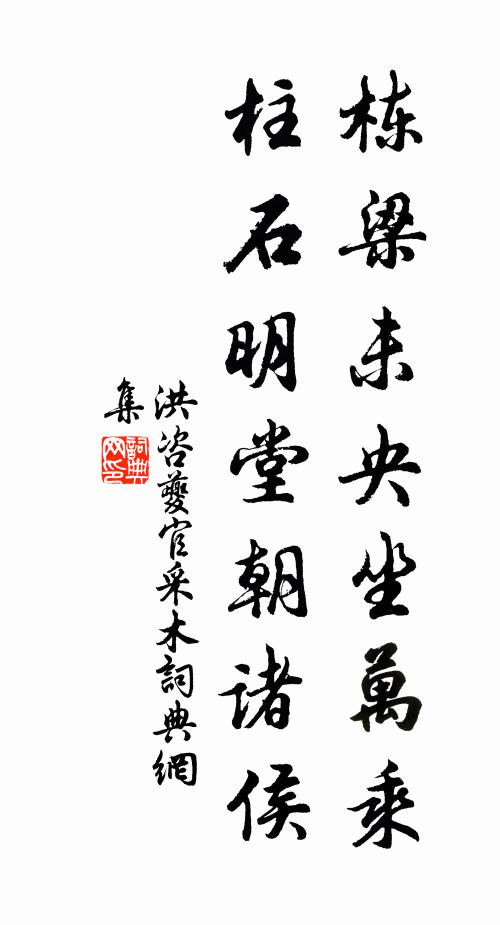 栋梁未央坐萬乘
柱石明堂朝诸侯
洪咨夔官采木詞典網
集
詞典網印